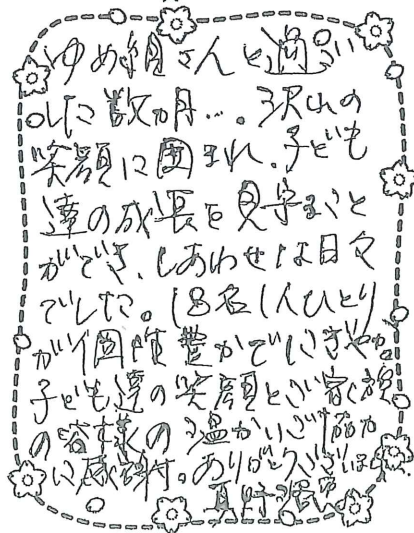 ゆめ組さんと過ご
した数ヵ月…沢山の
笑顔に囲まれ、子ども
達の成長を見守ること
ができ、しあわせな日々
でした。18名1人ひとり
が個性豊かでにぎやか。
子ども達の笑顔とご家族
の皆様の温かいご協力
に感謝。ありがとうございました